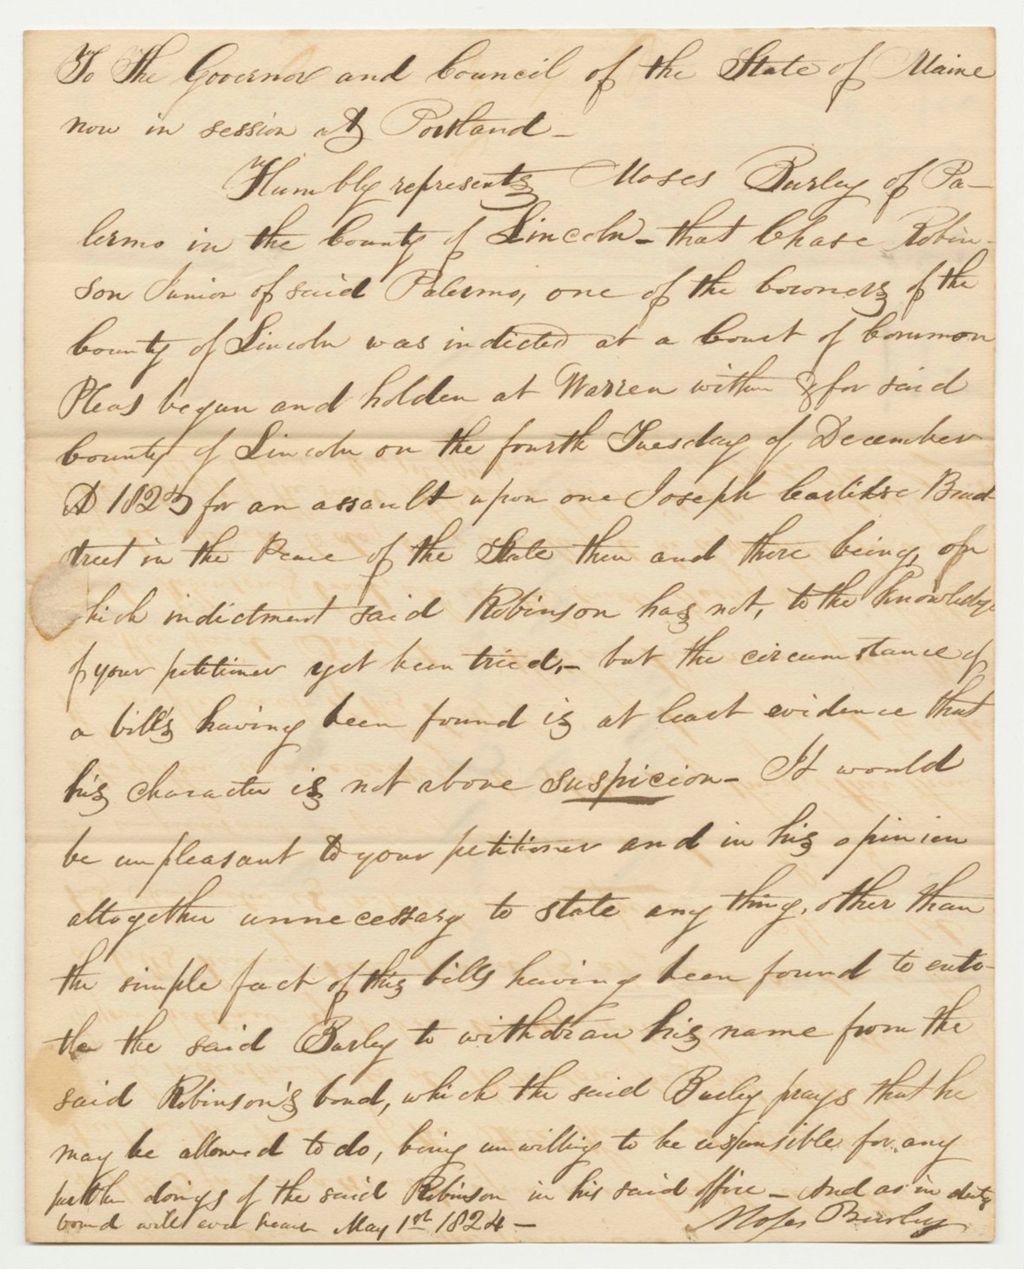 To The Governor and Council of the State of Maine
now in session at Portland –
Humbly represents Moses Burley of Pa-
lermo in the County of Lincoln – that Chase Robin-
son Junior of said Palermo, one of the coroners of the
County of Lincoln was indicted at a Court of Common
Pleas begun and holden at Warren within & for said
County of Lincoln on the fourth Tuesday of December
AD 1823 for an assault upon one Joseph Brad
street in the Peace of the State then and there being, of
which indictment said Robinson has not, to the knowledge
of your petitioner yet been tried, – but the circumstance of
a bill's having been found is at least evidence that
his character is not above suspicion – It would
be unpleasant to your petitioner and in his opinion
altogether unnecessary to state any thing, other than
the simple fact of this bills having been found to enti-
tle the said Burley to withdraw his name from the
said Robinson's bond, which the said Burley prays that he
may be allowed to do, being unwilling to be responsible for any
further doings of the said Robinson in his said office – And as in duty
bound will ever May 1st 1824 – Moses Burley